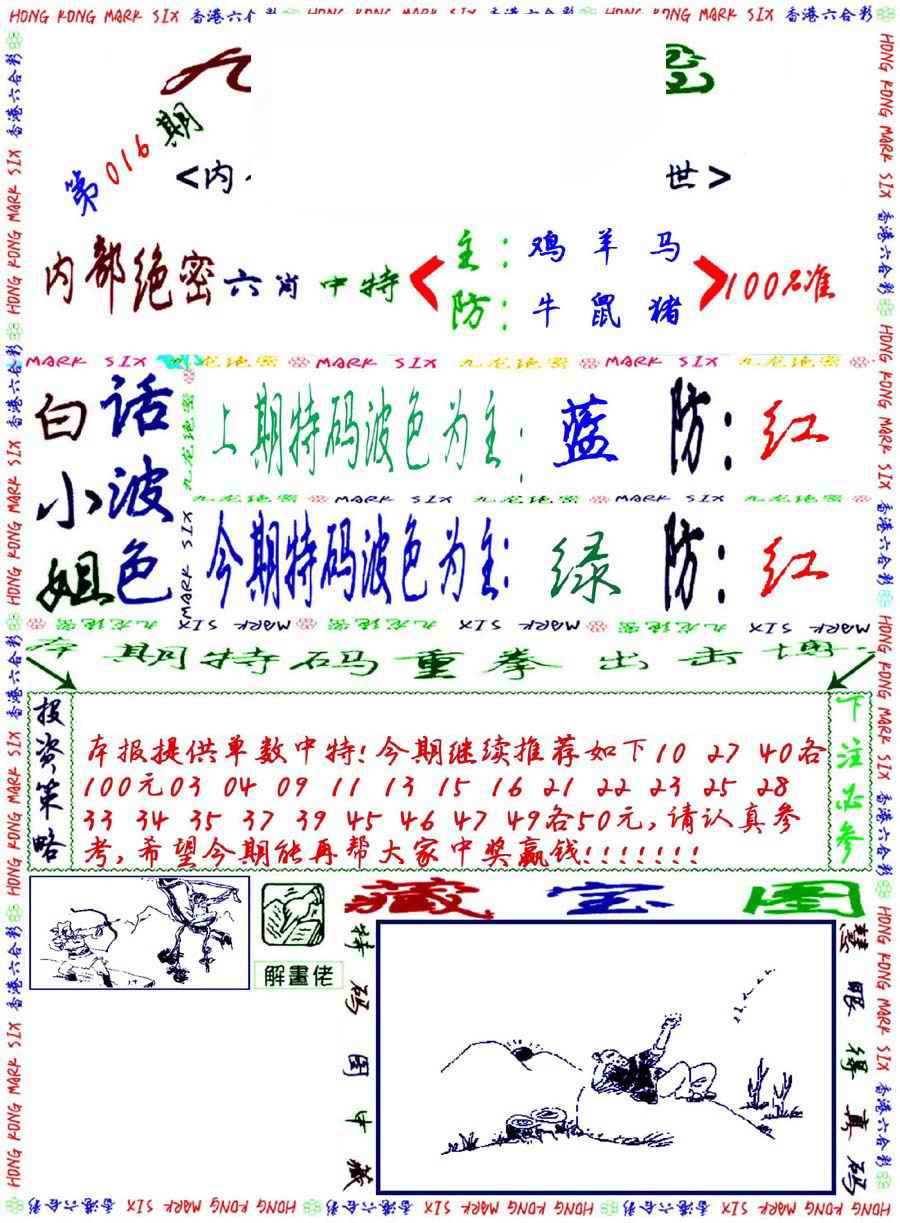 HONG KONG MARK SIX 香港六合彩 HONG KONG MARK SIX 香港六合彩
第016期
<内
世>
内部绝密六肖中特
主：鸡 羊 马
防：牛 鼠 猪
100%准
MARK SIX 九龙绝密 MARK SIX 九龙绝密 MARK SIX 九龙绝密
白话
小波
姐色
上期特码波色为主：蓝 防：红
九龙绝密 MARK SIX 九龙绝密 MARK SIX 九龙绝密
今期特码波色为主：绿 防：红
MARK SIX 九龙绝密 MARK SIX 九龙绝密 MARK SIX 九龙绝密 MARK SIX
本期特码重拳出击
投资策略
本报提供单数中特!今期继续推荐如下10 27 40各
100元03 04 09 11 13 15 16 21 22 23 25 28
33 34 35 37 39 45 46 47 49各50元,请认真参
考,希望今期能再帮大家中奖赢钱!!!!!!!
下注必参
解畫佬
藏宝图
特码图中藏
慧眼得真码
HONG KONG MARK SIX 香港六合彩 HONG KONG MARK SIX 香港六合彩 HONG KONG MARK SIX 香港六合彩